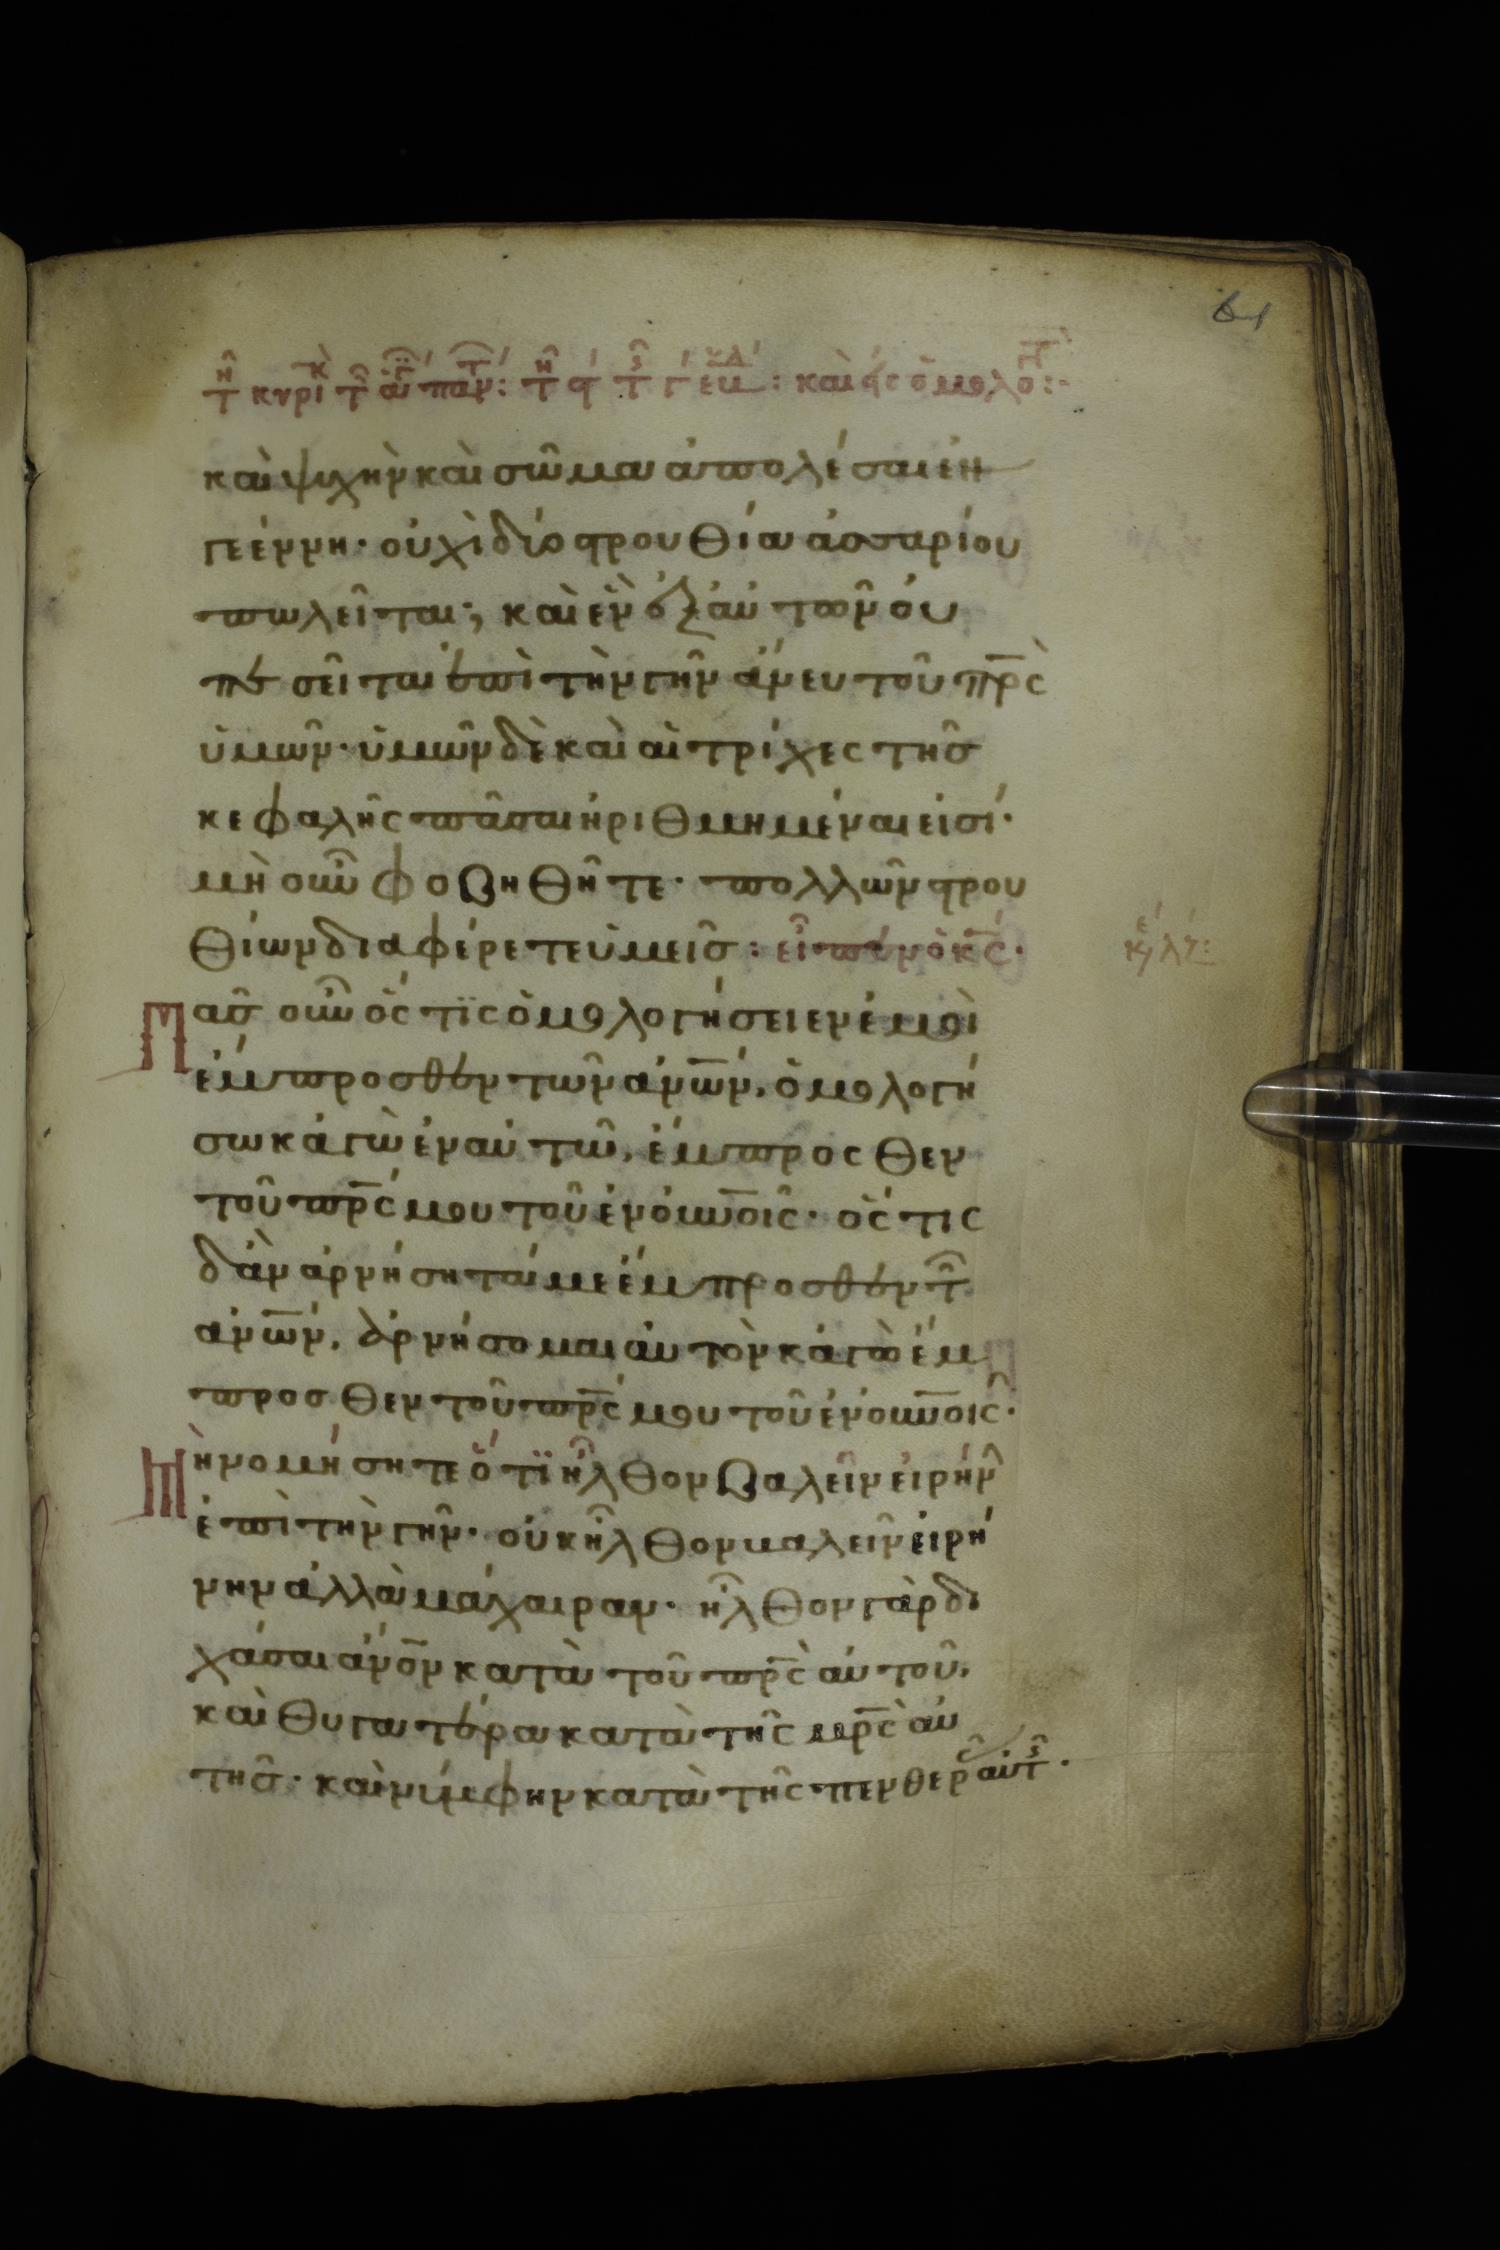 61
τῆ κυρι(κ) τῶν ἁγί πάν: τῆ ϛ τῆς γ ἑβδ: καὶ εἰς ὁμολογ:
καὶ ψυχὴν καὶ σῶμα ἀπολέσαι ἐν
γεέννη· οὐχὶ δύο στρουθία ἀσσαρίου
πωλεῖται; καὶ ἓν ἐξ αὐτῶν οὐ
πεσεῖται ἐπὶ τὴν γῆν ἄνευ τοῦ πρς
ὑμῶν· ὑμῶν δὲ καὶ αἱ τρίχες τῆς
κεφαλῆς πᾶσαι ἠριθμημέναι εἰσί·
μὴ οὖν φοβηθῆτε· πολλῶν στρου
θίων διαφέρετε ὑμεῖς: εἶπεν ὁ κς·
κλς:
Πᾶς οὖν ὅς τις ὁμολογήσει εν ἐμοὶ
ἔμπροσθεν τῶν ἀνων, ὁμολογή
σω κἀγὼ ἐν αὐτῶ, ἔμπροσθεν
τοῦ πρς μου τοῦ ἐν ὀυνοις· ὅς τις
δἂν ἀρνήσηταί με ἔμπροσθεν τῶν
ἀνων, ἀρνήσομαι αὐτὸν κἀγὼ ἔμ
προσθεν τοῦ πρς μου τοῦ ἐν ουνοις·
Μὴ νομήσητε ὅτι ἦλθον βαλεῖν εἰρήν
ἐπὶ τὴν γῆν· οὐκ ἦλθον βαλεῖν εἰρή
νην ἀλλὰ μάχαιραν· ἦλθον γὰρ δι
χάσαι ἀνον κατὰ τοῦ πρς αὐτοῦ,
καὶ θυγατέρα κατὰ τῆς μρς αὐ
τῆς· καὶ νύμφην κατὰ τῆς πενθερᾶς αὐτῆς·